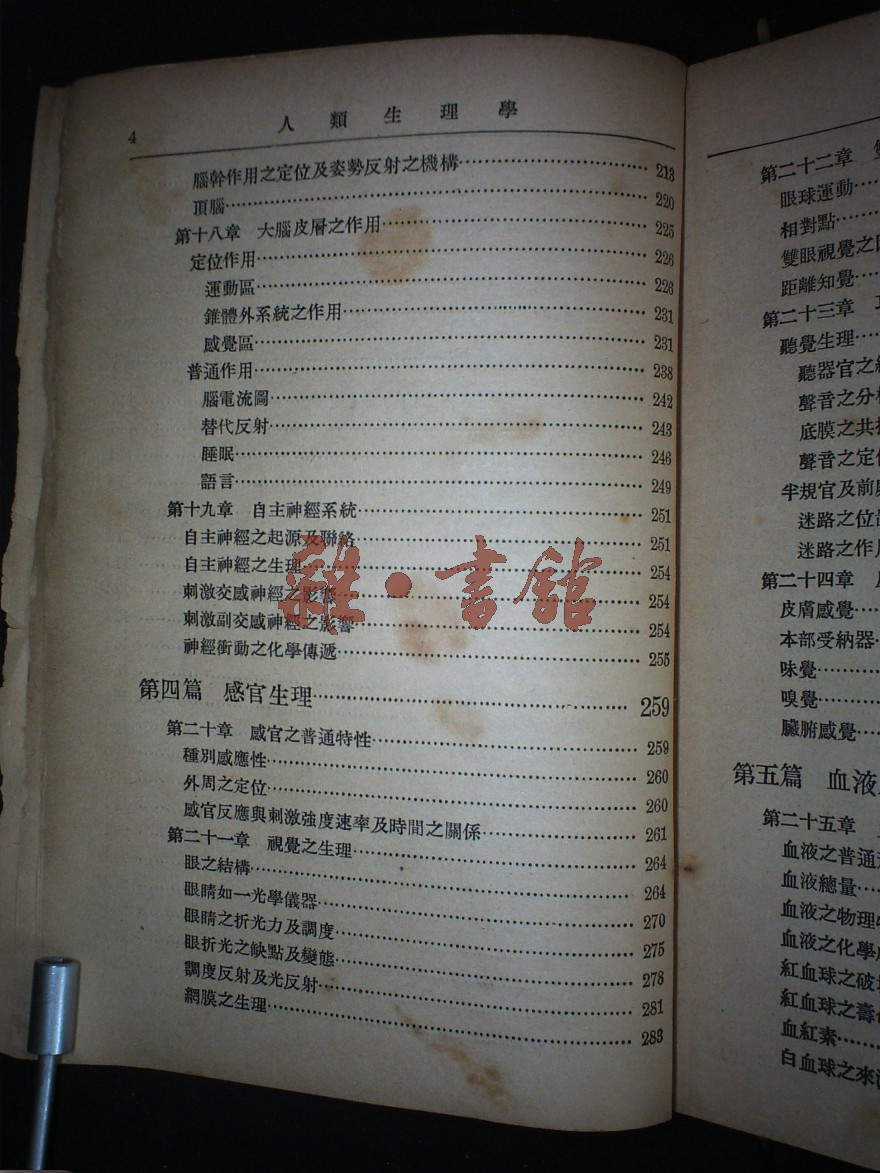 4
人類生理學
腦幹作用之定位及姿勢反射之機構 213
頂腦 220
第十八章 大腦皮層之作用 225
定位作用 226
運動區 226
錐體外系統之作用 231
感覺區 231
普通作用 238
腦電流圖 242
替代反射 243
睡眠 246
語言 249
第十九章 自主神經系統 251
自主神經之起源及聯絡 251
自主神經之生理 254
刺激交感神經之影響 254
刺激副交感神經之影響 254
神經衝動之化學傳遞 255
第四篇 感官生理 259
第二十章 感官之普通特性 259
種別感應性 260
外周之定位 260
感官反應與刺激強度速率及時間之關係 261
第二十一章 視覺之生理 264
眼之結構 264
眼睛如一光學儀器 270
眼睛之折光力及調度 275
眼折光之缺點及變態 278
調度反射及光反射 281
網膜之生理 283
雜·書館
第二十二章
眼球運動
相對點
雙眼視覺之
距離知覺
第二十三章
聽覺生理
聽器官之
聲音之分
底膜之共
聲音之定
半規官及前
迷路之位
迷路之作
第二十四章
皮膚感覺
本部受納器
味覺
嗅覺
臟腑感覺
第五篇 血液
第二十五章
血液之普通
血液總量
血液之物理
血液之化學
紅血球之破
紅血球之壽
血紅素
白血球之來